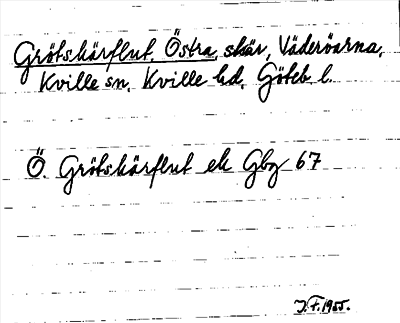 Grötskärflut, Östra, skär, Väderöarna,
Kville sn, Kville hd, Göteb. l.
Ö. Grötskärflut ek Gbg 67
J.F. 1955.